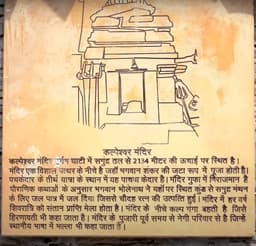 कल्पेश्वर मंदिर
कल्पेश्वर मंदिर उर्गम घाटी में समुद्र तल से 2134 मीटर की ऊचाई पर स्थित है।
मंदिर एक विशाल पत्थर के नीचे है जहाँ भगवान शंकर की जटा रूप में पूजा होती है।
पंचकेदार के तीर्थ यात्रा के स्थान में यह पाचवा केदार है। मंदिर गुफा में विराजमान है
पौराणिक कथाओं के अनुसार भगवान भोलेनाथ ने यहाँ पर स्थित कुंड से समुद्र मंथन
के लिए जल पात्र में जल दिया जिससे चौदह रत्न की उत्पत्ति हुई। मंदिर में हर वर्ष
शिवरात्रि को संतान प्राप्ति मेला होता है। मंदिर के नीचे कल्प गंगा बहती है जिसे
हिरणावती भी कहा जाता है। मंदिर के पुजारी पूर्व समय से नेगी परिवार से है जिन्हें
स्थानीय भाषा में भल्ला भी कहा जाता है।